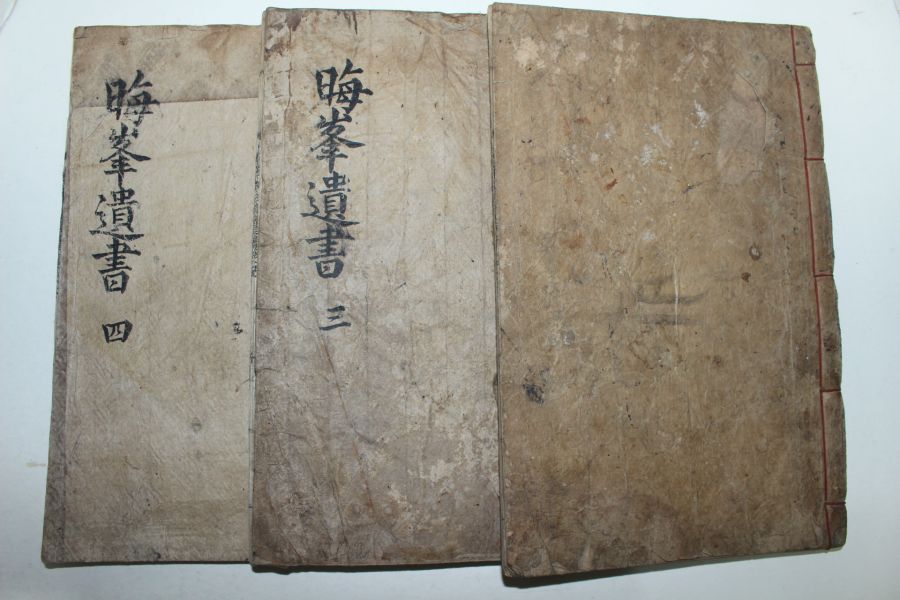 晦峯遺書 三
晦峯遺書 四